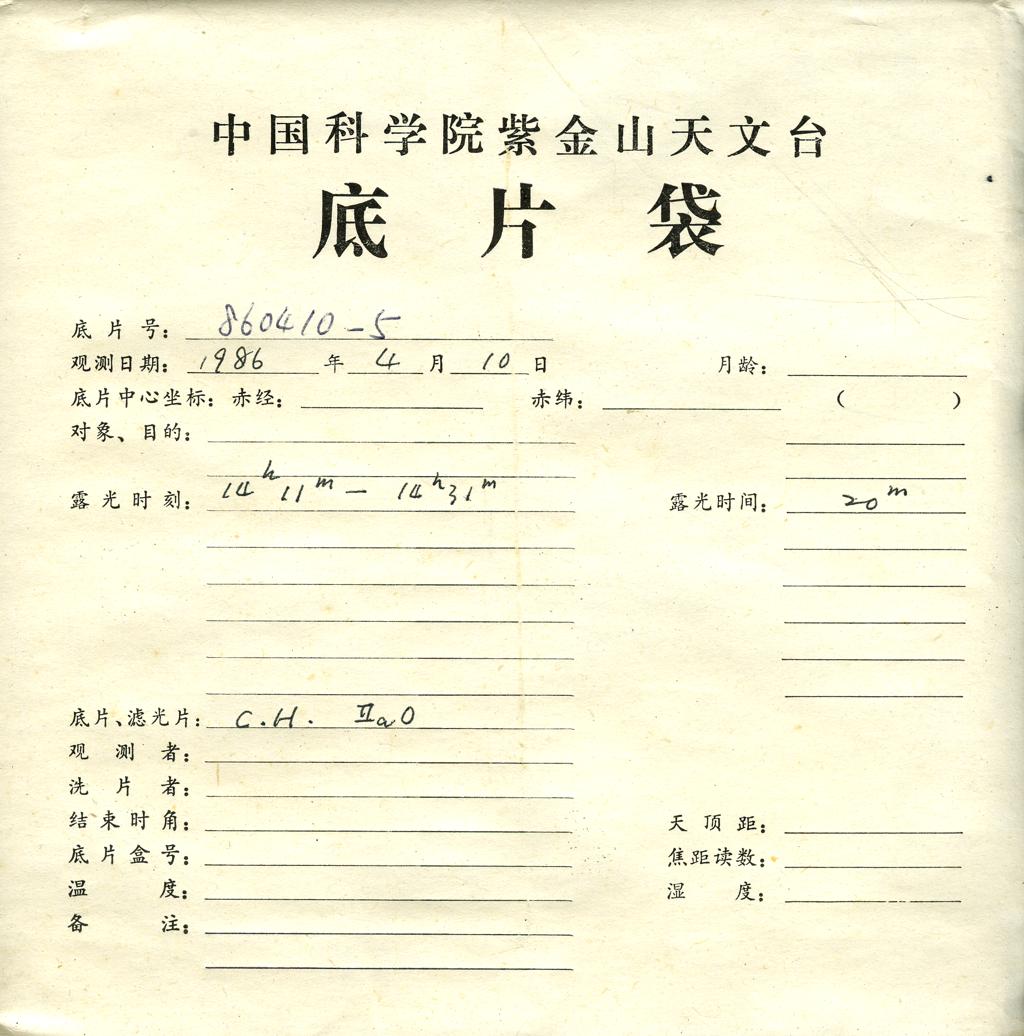 中国科学院紫金山天文台
底片袋
底片号: 860410-5
观测日期: 1986 年 4 月 10 日 月龄:
底片中心坐标: 赤经: 赤纬: ( )
对象、目的:
露光时刻: 14h 11m — 14h 31m 露光时间: 20m
底片、滤光片: C.H. IIaO
观测者:
洗片者:
结束时角: 天顶距:
底片盒号: 焦距读数:
温度: 湿度:
备注: